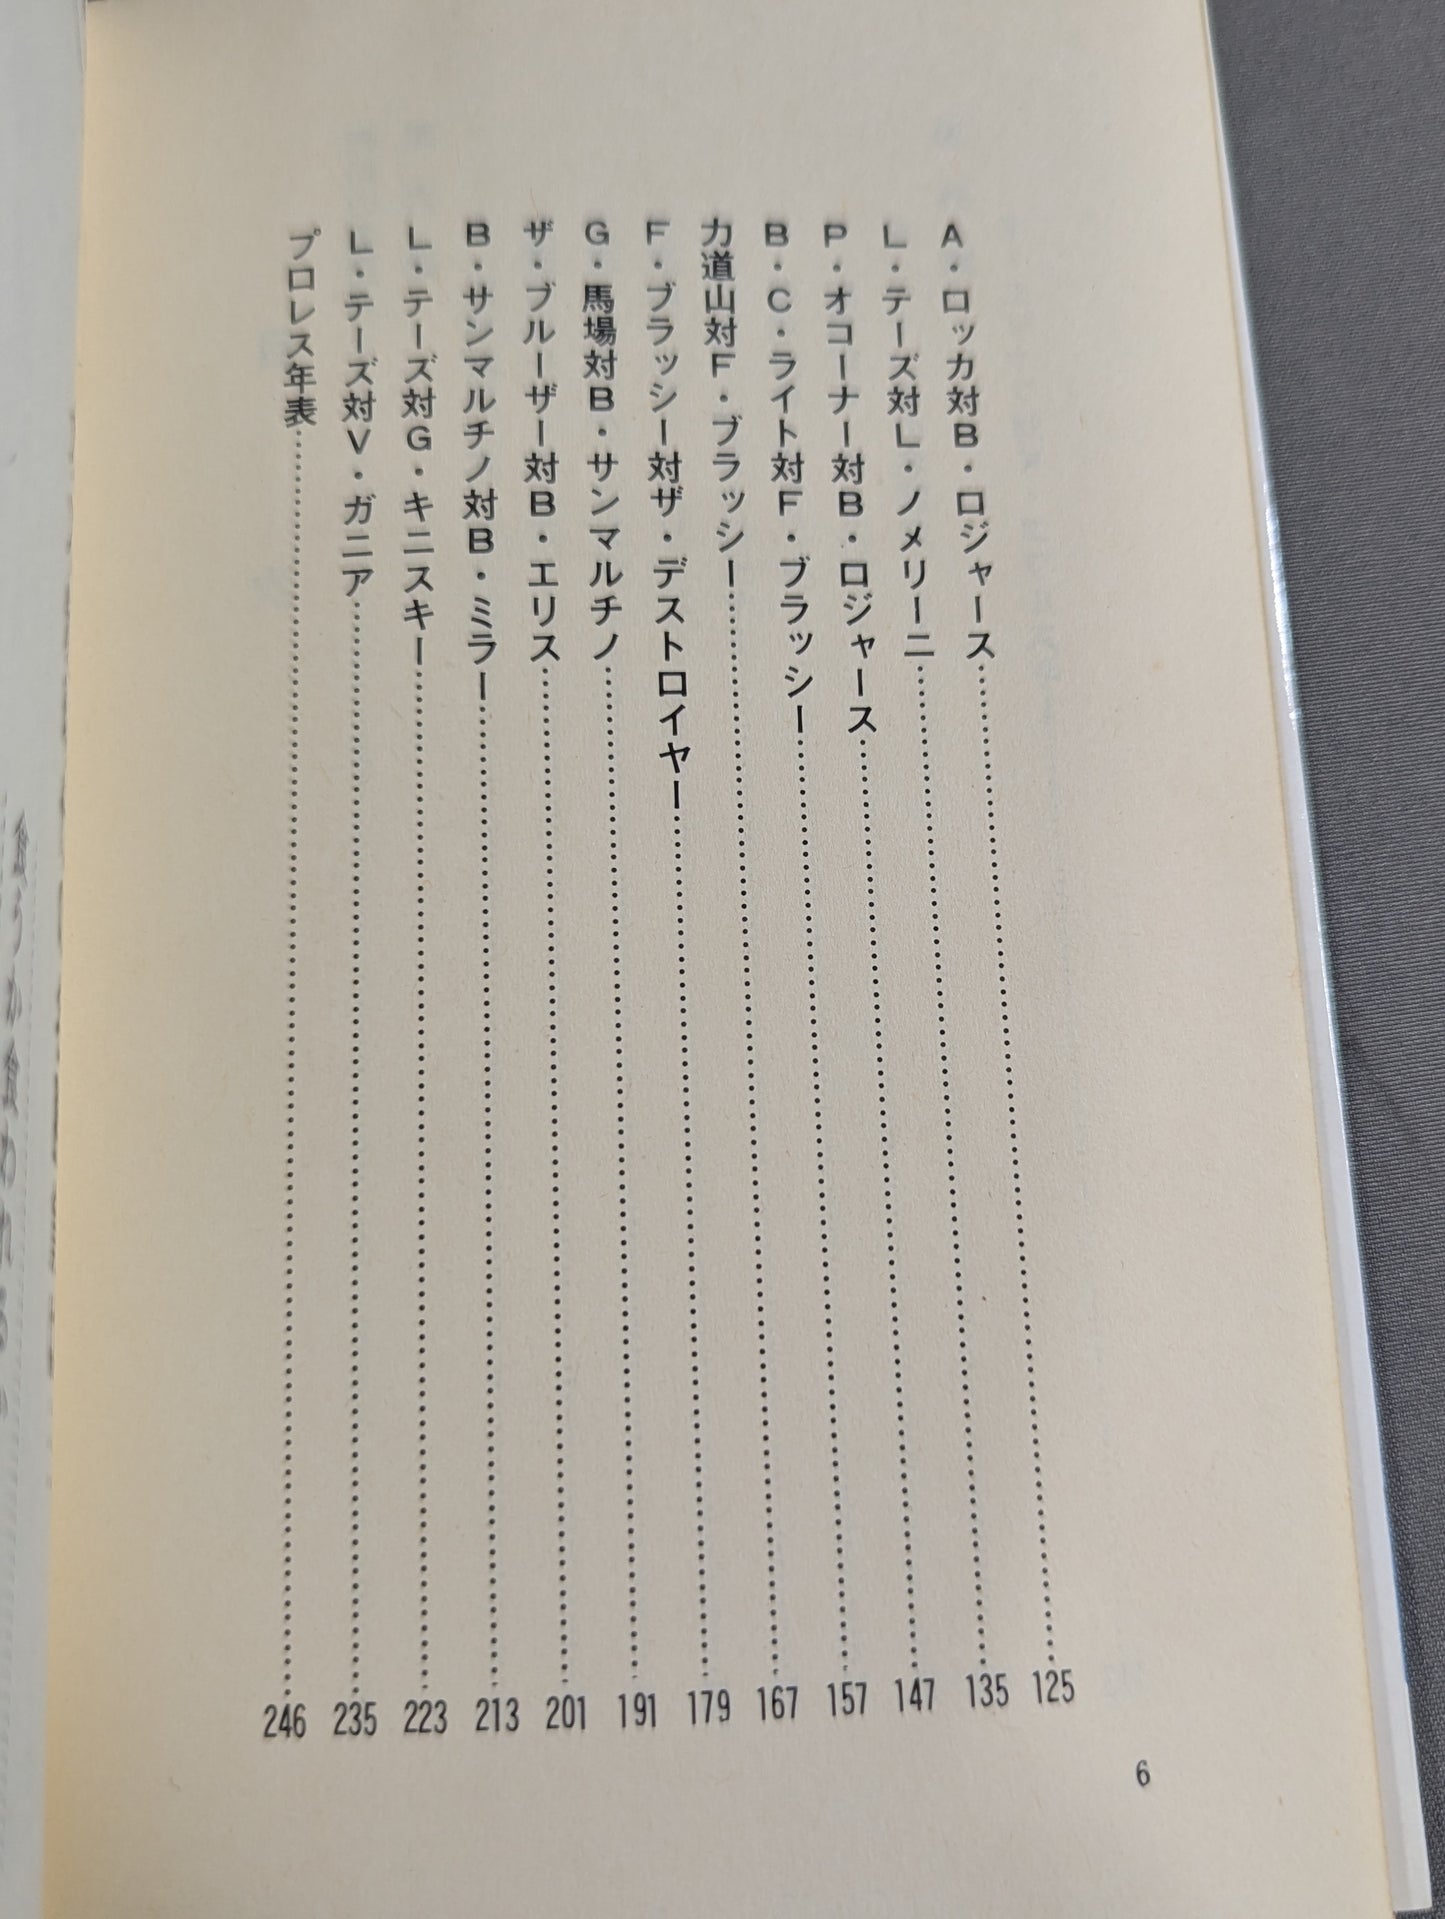 A・ロッカ対B・ロジャース……125
L・テーズ対L・ノメリーニ……135
P・オコーナー対B・ロジャース……147
B・C・ライト対F・ブラッシー……157
力道山対F・ブラッシー……167
F・ブラッシー対ザ・デストロイヤー……179
G・馬場対B・サンマルチノ……191
ザ・ブルーザー対B・エリス……201
B・サンマルチノ対B・ミラー……213
L・テーズ対G・キニスキー……223
L・テーズ対V・ガニア……235
プロレス年表……246
6